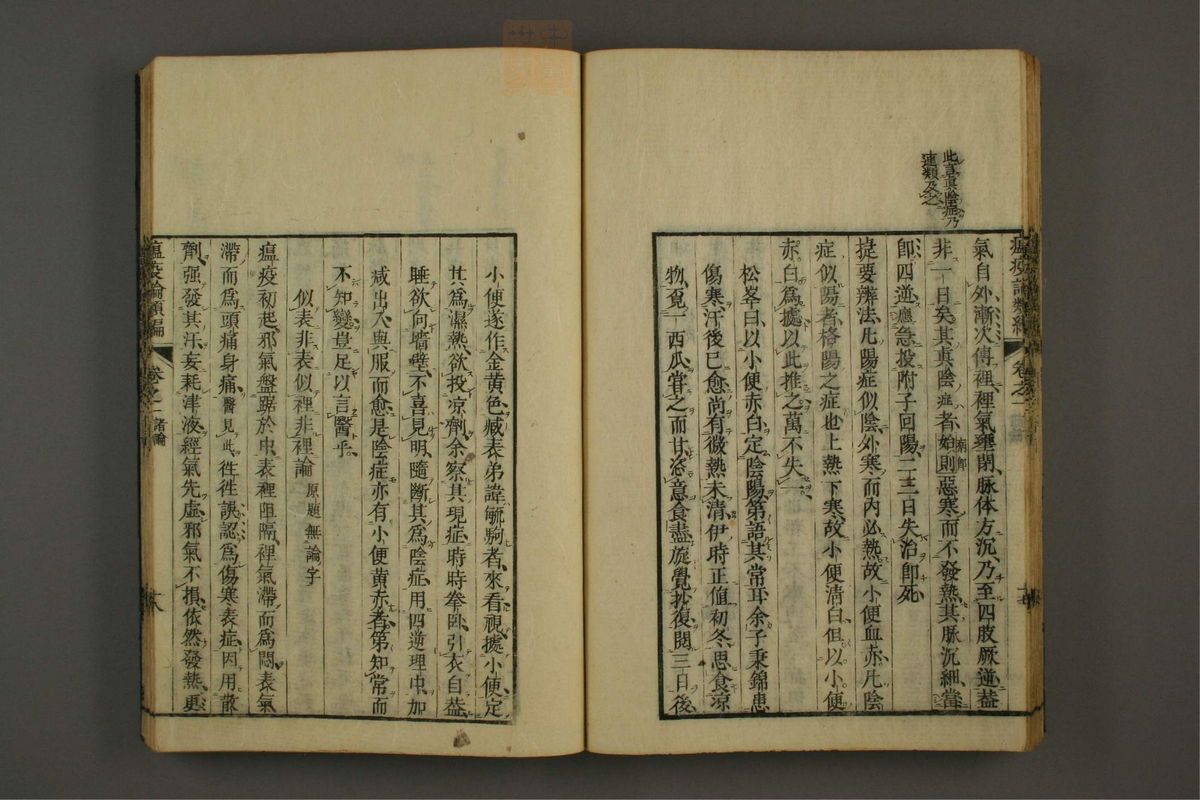 此言真陰症乃
連類及之
瘟疫論類編
卷之一
氣自外漸次傳裡裡氣壅閉脉体方沉乃至四肢厥逆蓋
非一日矣其真陰症者始則惡寒而不發熱其脉沉細當
即四逆應急投附子回陽二三日失治即死
掟要辨法凢陽症似陰外寒而内必熱故小便血赤凢陰
症似陽者格陽之症也上熱下寒故小便清白但以小便
赤白為據以此推之萬不失一
松峯曰以小便赤白定陰陽第語其常耳余子秉錦患
傷寒汗後已愈尚有微熱未清伊時正值初冬思食凉
物覔一西瓜嘗之而甘恣意食盡旋覺抄復閱三日後
小便遂作金黄色臧表弟諱毓駒者來看視據小便定
其為濕熱欲投凉劑余察其現症時時拳卧引衣自葢
睡欲向墻壁不喜見明隨斷其為陰症用四逆理中加
减出入與服而愈是陰症亦有小便黄赤者第知常而
不知變豈足以言醫乎
似表非表似裡非裡論 原題無論字
瘟疫初起邪氣盤踞於中表裡阻隔裡氣滯而為悶表氣
滯而為頭痛身痛醫見此徃徃誤認為傷寒表症因用散
劑强發其汗妄耗津液經氣先虛邪氣不損依然發熱更
瘟疫論類編
卷之一 諸論
十八